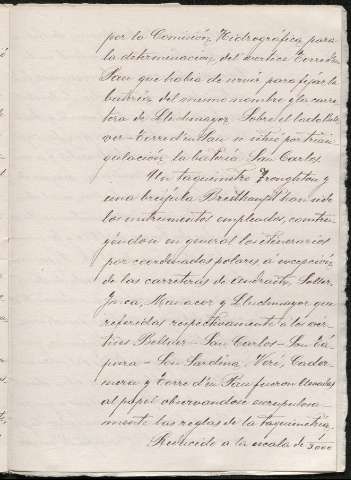 por la Comisión Hidrográfica para
la determinación del vertice Torre d'en
Pau que habia de servir para fijar la
batería del mismo nombre y la carre-
tera de Lluchmayor. Sobre el lado Bell-
ver-Torre d'en Pau se situó por trian-
gulación la batería San Carlos.
Un taquímetro Troughton y
una brújula Breithaupt han sido
los instrumentos empleados, constru-
yéndose en general los itinerarios
por coordenadas polares á excepción
de las carreteras de Andraitx, Soller,
Inca, Manacor y Lluchmayor que
referidas respectivamente á los vér-
tices Bellver - San Carlos - Son
Son Sardina, Verí, Cader-
nera y Torre d'en Pau fueron llevadas
al papel observandose escrupulosa-
mente las reglas de la taquimetría.
Reducido a la escala de 5000